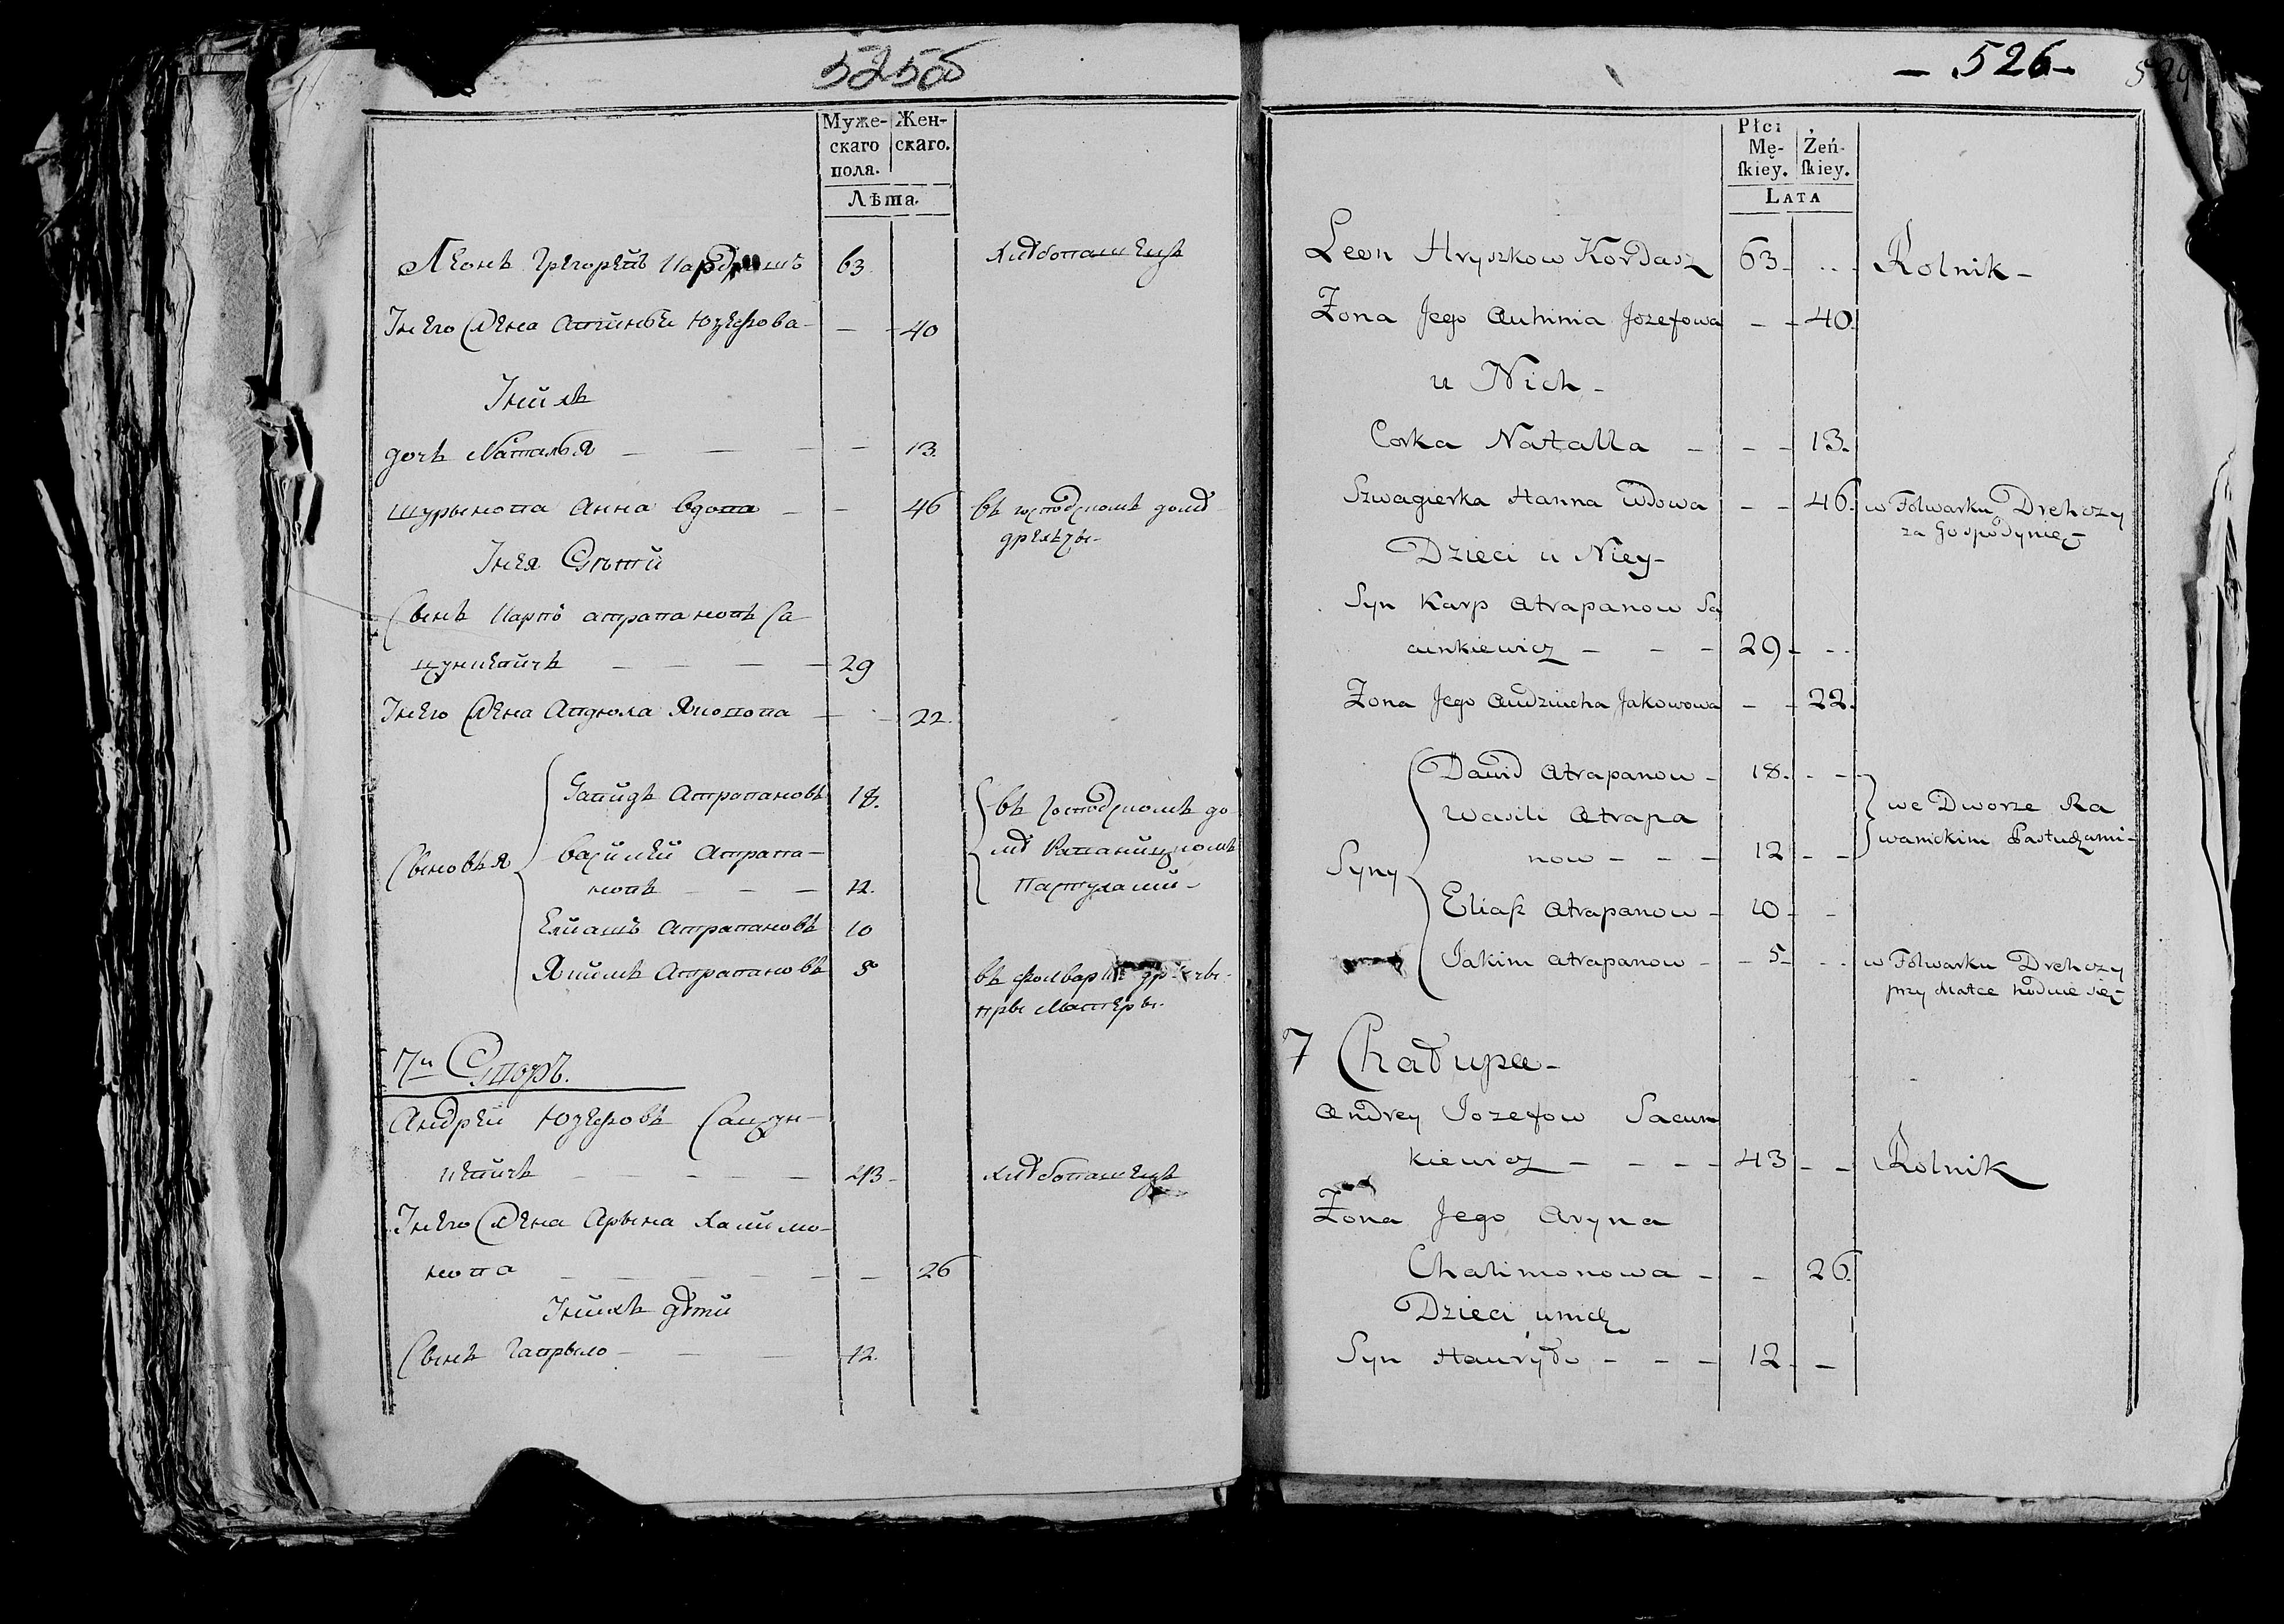 525об
Муже-
скаго
пола.
Жен-
скаго.
Лѣта.
Леонъ Грегоревъ Кардашъ 63. хлѣбопашецъ
Унего Жена Авгинья Юзефова - - 40
Унихъ
дочь Наталья - - - - 13.
швыркова Анна вдова - - 46 въ господскомъ домѣ
дрехчы-
Унея Дѣти
Сынъ Карпъ атрапановъ Са
цункевичъ - - - - 29
Унего Жена Авдюла Яковова - - 22.
Сыновья
Давидъ Атрапановъ 18.
василей Атрапа-
новъ - - - 12.
Еліашъ Атрапановъ 10
Якимъ Атрапановъ 5
въ господскомъ до
мѣ Раваницкомъ
Пастухами-
въ фолварке дрехчы-
пры Матеры.
7й Дворъ.
Андрей Юзефовъ Сацун-
кевичъ - - - - - 43- хлѣбопашецъ
Унего Жена Арына Халимо-
нова - - - - - - 26
Унихъ дѣти
Сынъ Гаврыло - - - 12.
- 526-
529
Płci
Mę-
skiey.
Żeń-
skiey.
LATA
Leon Hryszkow Kordasz 63- ... Rolnik-
Zona Jego Auhinia Jozefowa - - 40.
u Nich-
Corka Natalla - - - 13.
Szwagierka Hanna Wdowa - - 46. w Folwarku Drehczy
za Gospodynię-
Dzieci u Niey-
Syn Karp Atrapanow Sa
cunkiewicz - - - 29- - -
Zona Jego Audziucha Jakowowa - - 22.
Syny
Dawid Atrapanow - 18. - -
Wasili Atrapa
now - - - 12 - -
Eliasz Atrapanow - 10 - -
Jakim Atrapanow - - 5- - -
we Dworze Ra
wanickim Pastuchami-
w Folwarku Drehczy
przy Matce hoduie się-
7 Chałupa-
Andrey Jozefow Sacun
kiewicz - - - - 43 - - Rolnik
Zona Jego Aryna
Chalimonowa - - 26.
Dzieci unich
Syn Hauryło - - - 12 - -